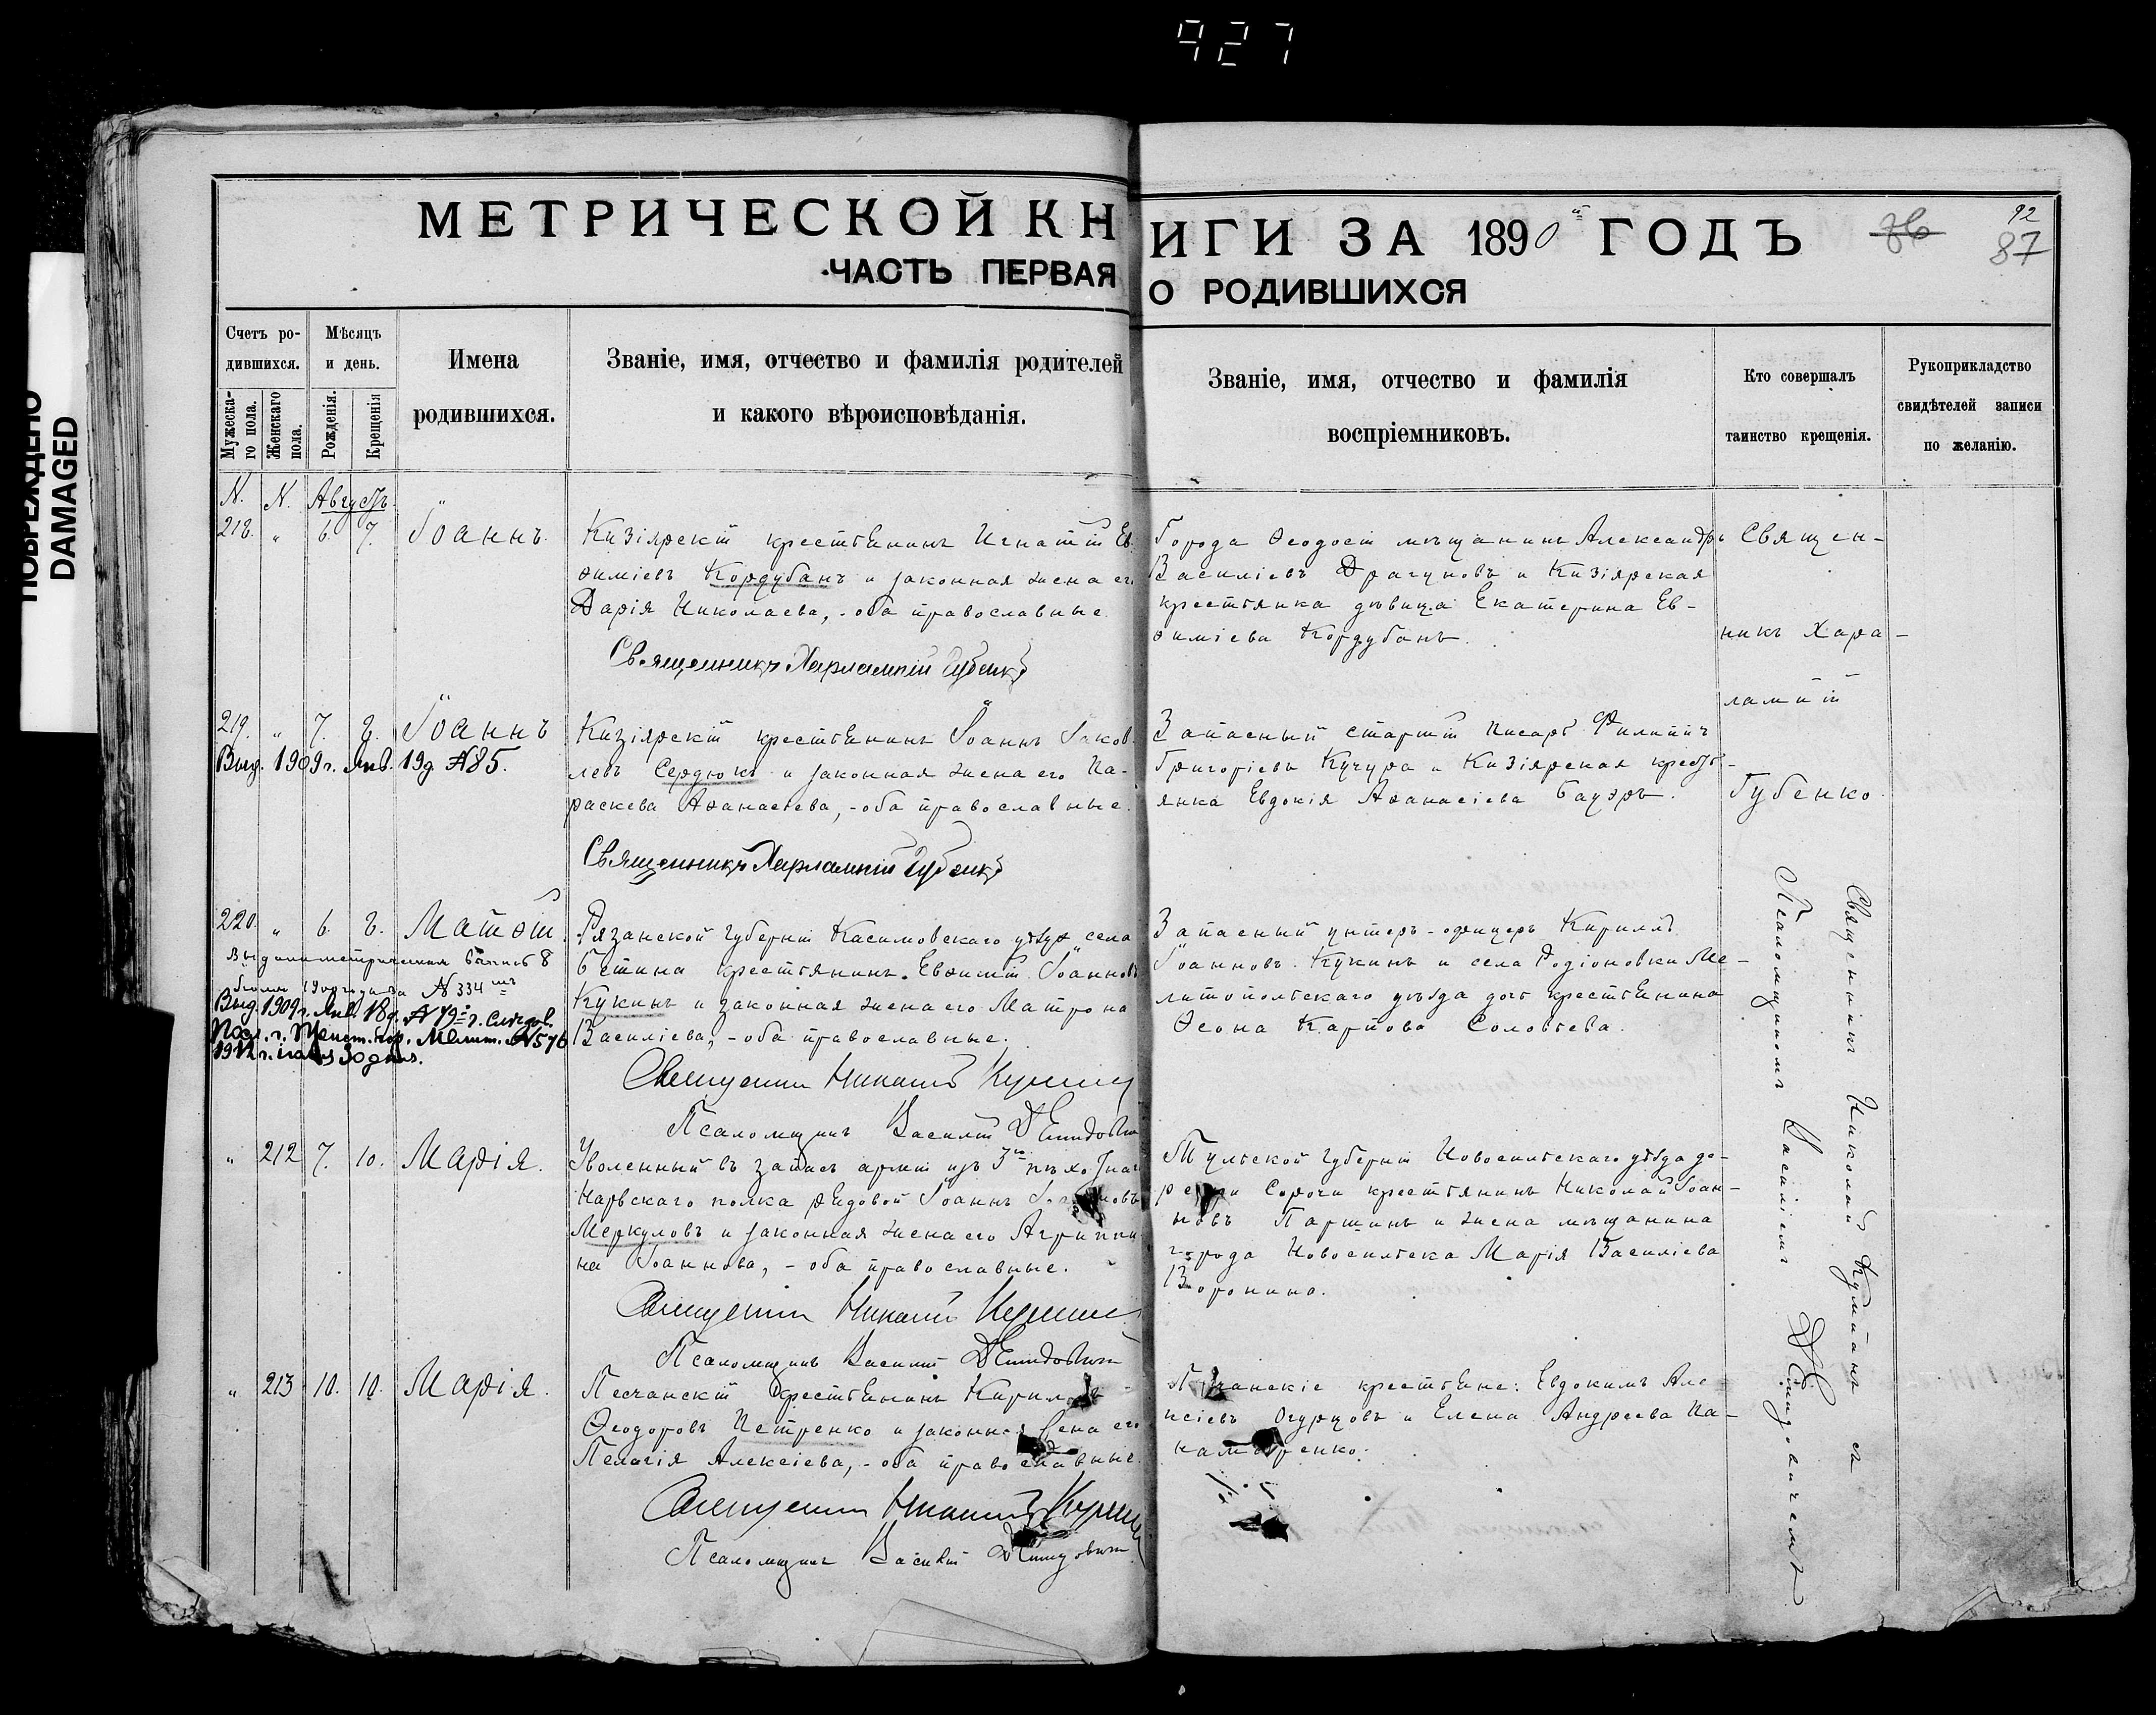 927
ПОВРЕЖДЕНО
DAMAGED
МЕТРИЧЕСКОЙ КНИГИ ЗА 1890й ГОДЪ
92
86
87
ЧАСТЬ ПЕРВАЯ О РОДИВШИХСЯ
Счетъ ро-
дившихся.
Мужеска-
го пола.
Женскаго
пола.
Мѣсяцъ
и день.
Рожденія.
Крещенія
Имена
родившихся.
Званіе, имя, отчество и фамилія родителей
и какого вѣроисповѣданія.
Званіе, имя, отчество и фамилія
воспріемниковъ.
Кто совершалъ
таинство крещенія.
Рукоприкладство
свидѣтелей записи
по желанію.
N. N. Августъ.
218. " 6. 7. Іоаннъ.
Кизіярскій крестьянинъ Игнатій Ев-
ѳиміевъ Кордубанъ и законная жена его
Дарія Николаева, - оба православные.
Священникъ Харлампій Губенко
Города Ѳеодосіи мѣщанинъ Александръ
Василіевъ Драгуновъ и Кизіярская
крестьянка дѣвица Екатерина Ев-
ѳиміева Кордубанъ.
Священ-
никъ Хара-
лампій
Губенко.
219. " 7. 8. Іоаннъ
Выд. 1909 г. Янв. 19д. №85.
Кизіярскій крестьянинъ Іоаннъ Іаков-
левъ Сердюкъ и законная жена его Па-
раскева Аѳанасіева, - оба православные.
Священникъ Харлампій Губенко
Запасный старшій писарь Филиппъ
Григоріевъ Кучура и Кизіярская кресть-
янка Евдокія Аѳанасіева Бауэръ.
220. " 6. 8. Матѳій.
№ 334
Выд. 1909 г. Янв. 18д. №79
1912 г.
Рязанской губерніи Касимовскаго уѣзда села
Бетина крестьянинъ Евѳимій Іоанновъ
Кукинъ и законная жена его Матрона
Василіева, - оба православные.
Священникъ Николай
Псаломщикъ Василій Демидовичъ
Запасный унтеръ-офицеръ Кириллъ
Іоанновъ Кукинъ и села Родіоновки Ме-
литопольскаго уѣзда дочь крестьянина
Ѳеона Карпова Соловьева.
Священникъ Николай
Псаломщикомъ Василіемъ Демидовичемъ
" 212 7. 10. Марія.
Уволенный въ запасъ арміи изъ 3го пѣхотнаго
Нарвскаго полка рядовой Іоаннъ
Меркуловъ и законная жена его Агриппи-
на Іоаннова, - оба православные.
Священникъ Николай
Псаломщикъ Василій Демидовичъ
Тульской губерніи Новосильскаго уѣзда де-
ревни Сорочи крестьянинъ Николай Іоан-
новъ Паршинъ и жена мѣщанина
города Новосильска Марія Василіева
Воронина.
" 213 10. 10. Марія.
Песчанскій крестьянинъ Кириллъ
Ѳеодоровъ Петренко и законная жена его
Пелагія Алексіева, - оба православные.
Священникъ Николай
Псаломщикъ Василій Демидовичъ
Песчанскіе крестьяне: Евдокимъ Але-
ксіевъ Огурцовъ и Елена Андреева Па-